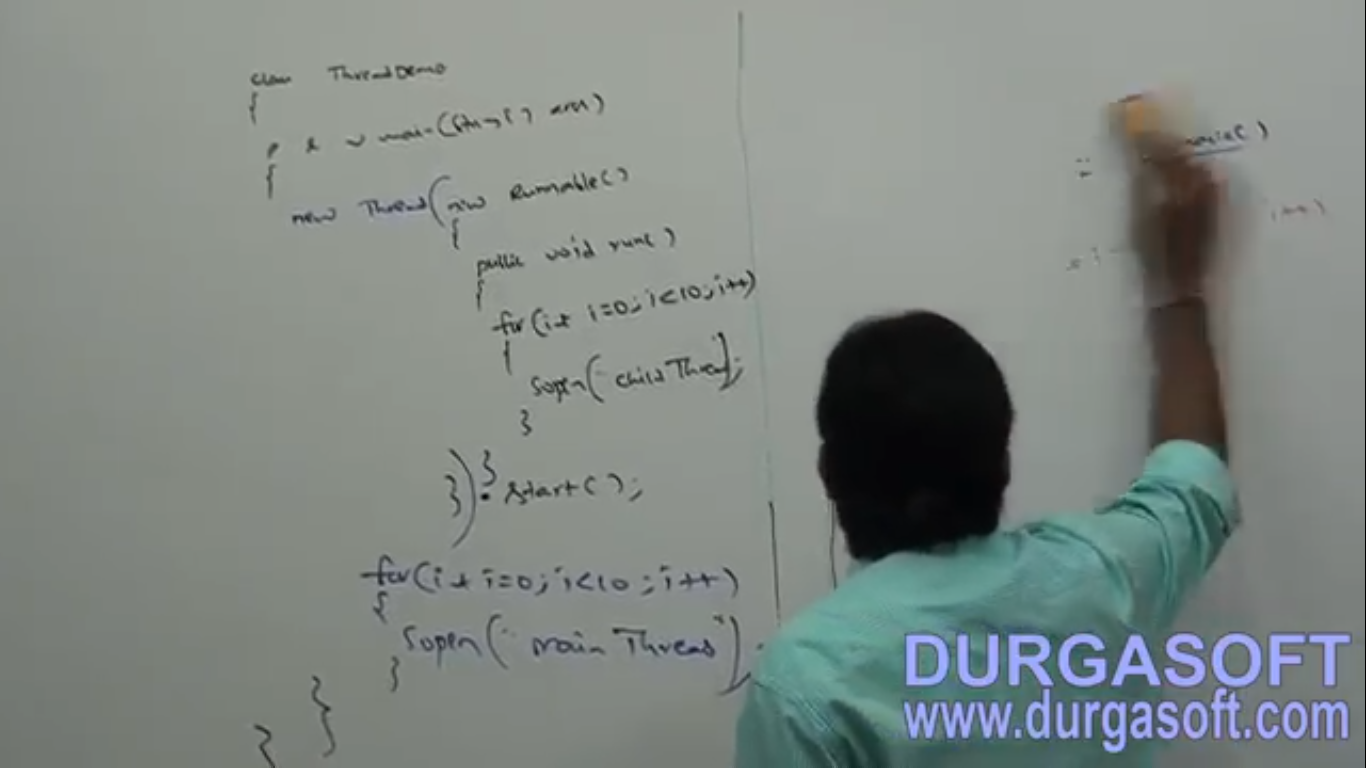 class ThreadDemo
{
p s v main(String[] args)
{
new Thread(new Runnable()
{
public void run()
{
for(int i=0;i<10;i++)
{
Sopln("child Thread");
}
}
}).start();
for(int i=0;i<10;i++)
{
Sopln("main Thread")
}
}
}
i++)
DURGASOFT
www.durgasoft.com